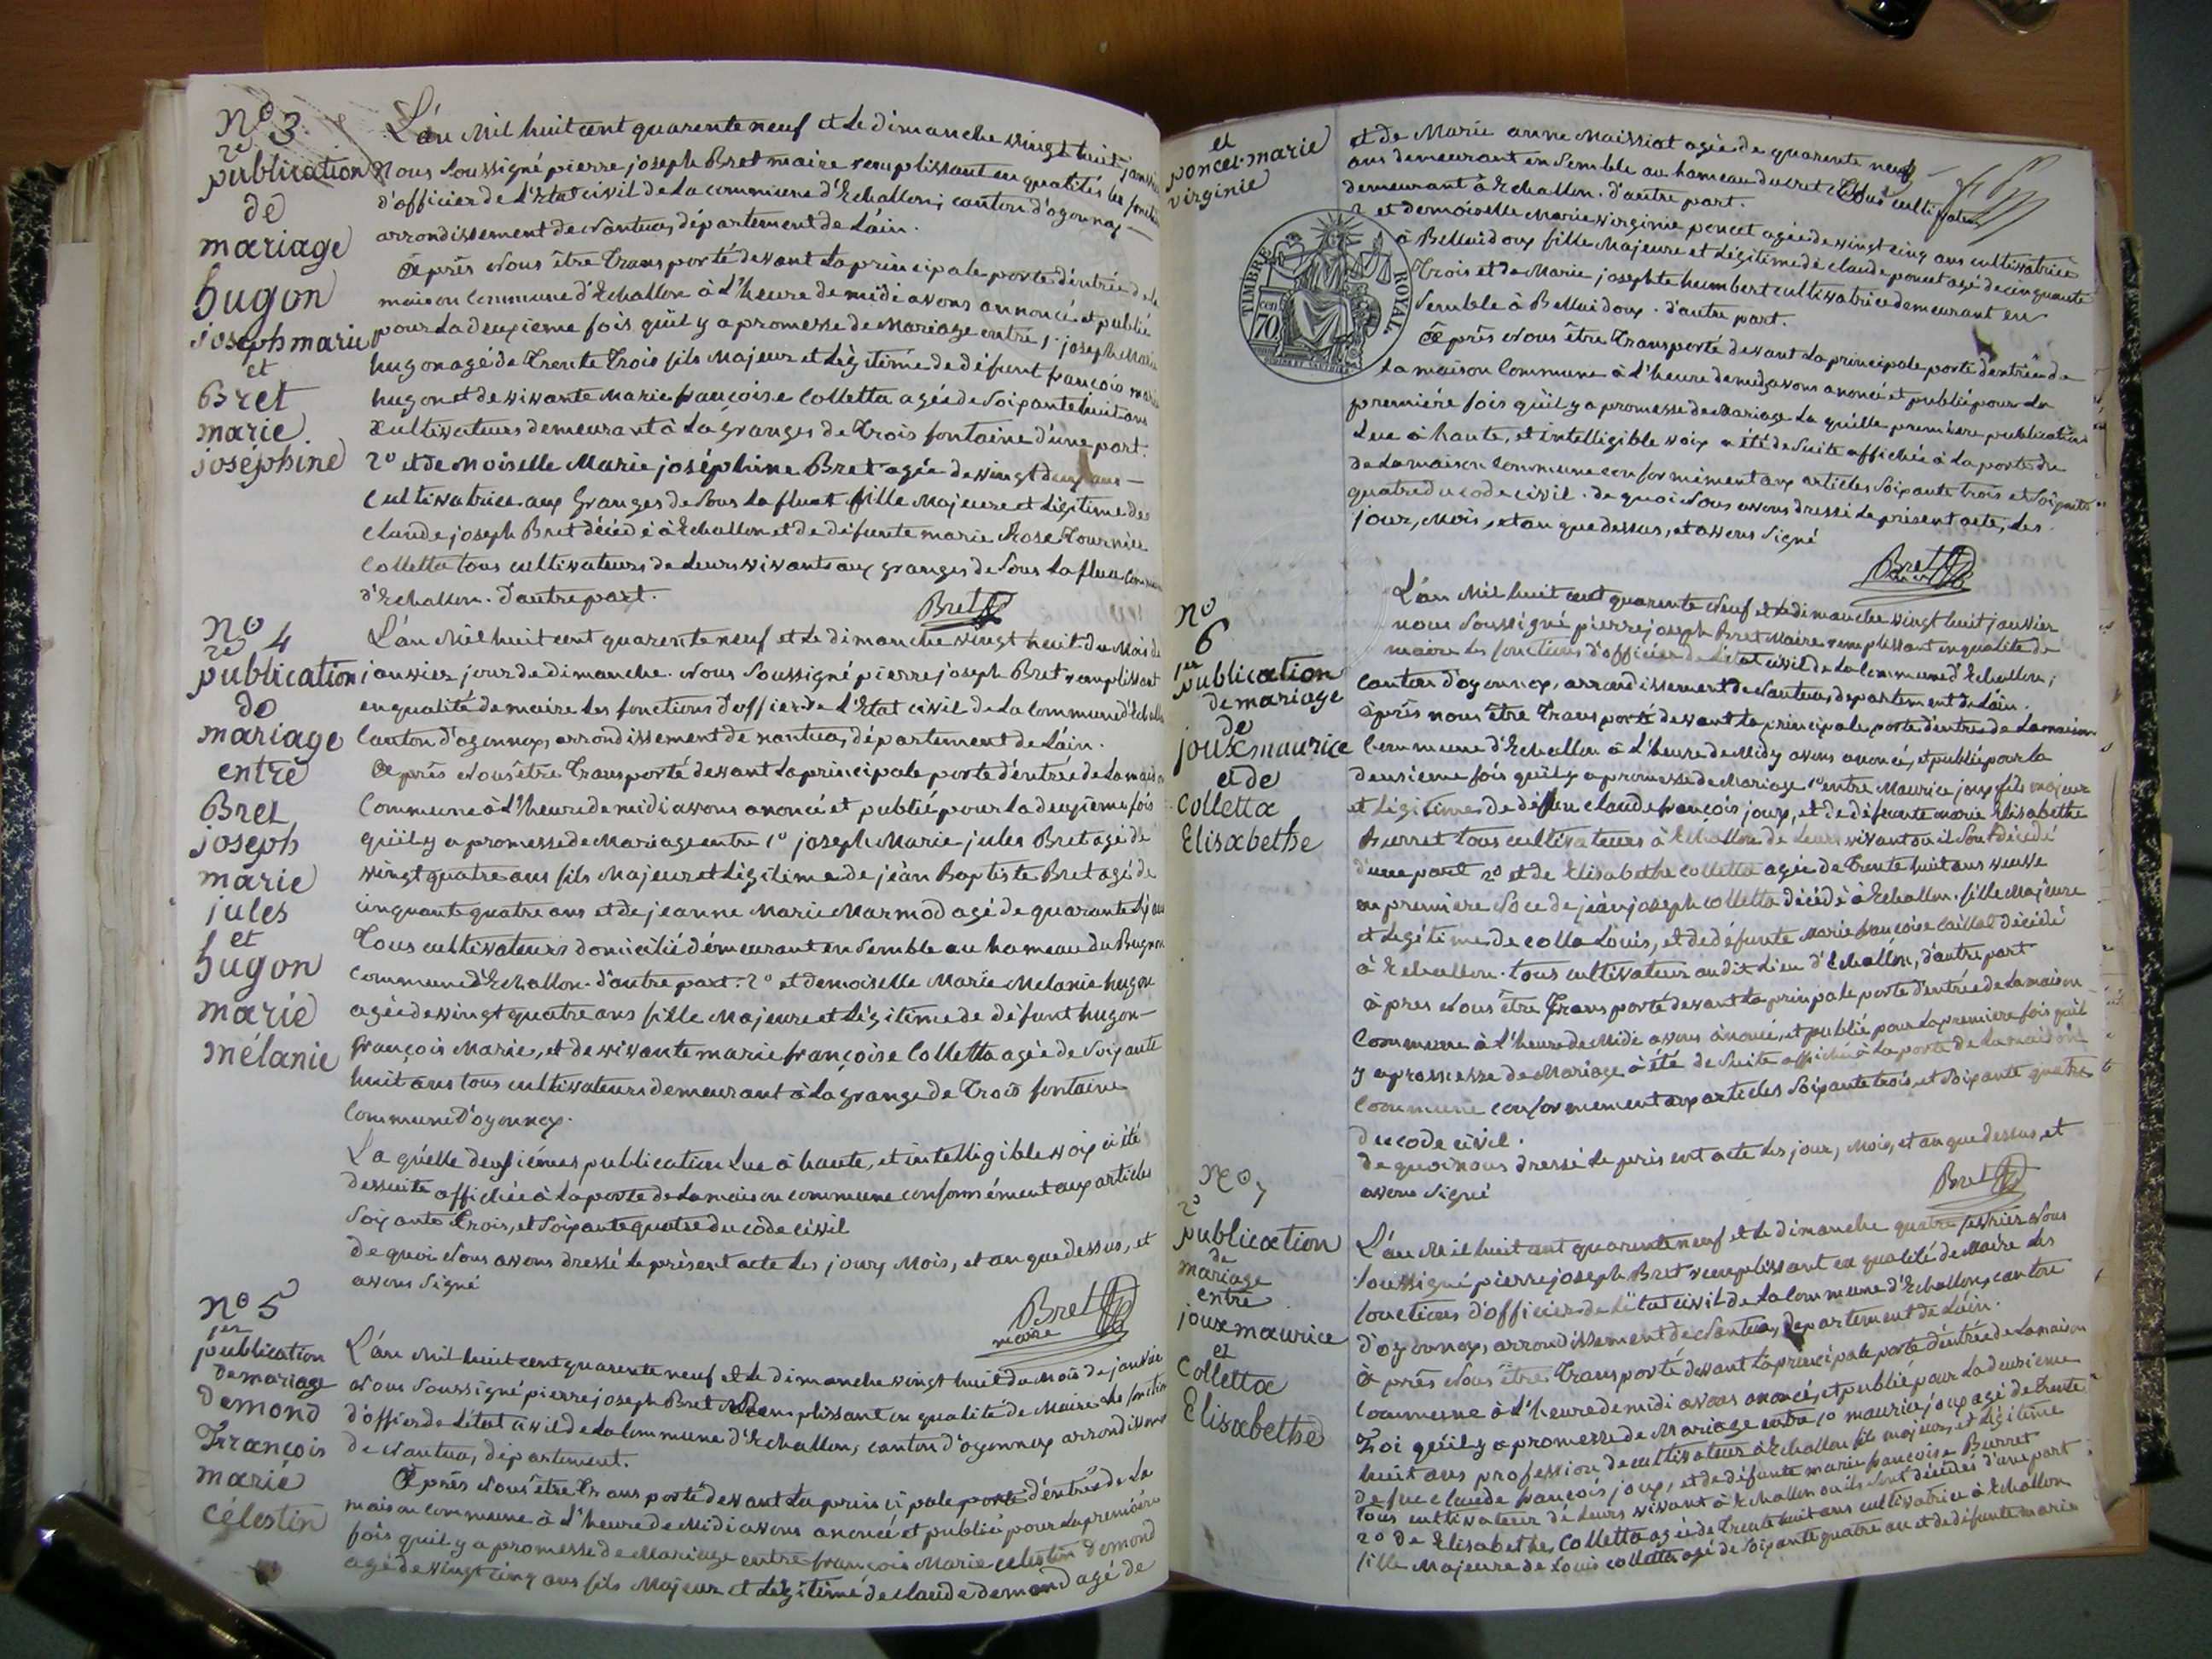 No 3
2e
publication
de
mariage
hugon
joseph marie
et
Bret
marie
joséphine
L'án Mil huit cent quarente neuf et le dimanche vingt huit janvier
Nous Soussigné pierre joseph Bret maire remplissant en qualités les
d'officier de L'Etat civil de La commune d'Echallon; canton d'oyonnax
arrondissement de Nantua, département de L'áin.
Après Nous être transporté devant La principale porte d'éntrée de la
maison commune d'Echallon à L'heure de midi avons annoncé et publié
pour La deuxieme fois qu'il y a promesse de Mariage entre 1. joseph Marie
hugon agé de trente trois fils Majeur et Légitime de défunt françois marie
hugon et de vivante Marie françoise Colletta agée de Soixante huit ans
cultivateurs demeurant à La granges de trois fontaine d'une part.
2o et de Moiselle Marie joséphine Bret agée de vingt deux ans
Cultivatrice aux Granges de Sous La flua fille Majeure et Légitime de
Claude joseph Bret décédé à Echallon et de défunte marie Rose Tournier
Colletta tous cultivateurs de Leurs vivants aux granges de Sous La flua
d'Echallon. D'autre part.
Bret
No 4
2e
publication
de
mariage
entre
Bret
joseph
marie
jules
et
hugon
marie
mélanie
L'án Mil huit cent quarente neuf et Le dimanche vingt huit du Mois de
janvier jour de dimanche. Nous Soussigné pierre joseph Bret remplissant
en qualité de maire Les fonctions d'officier de L'Etat civil de La Commune d'Echallon
Canton d'oyonnax, arrondissement de nantua, département de L'áin.
Après Nous être transporté devant La principale porte d'éntrée de La maison
Commune à L'heure de midi avons anoncé et publié pour La deuxième fois
qu'il y a promesse de Mariage entre 1o joseph Marie jules Bret agé de
vingt quatre ans fils Majeur et Légitime de jéan Baptiste Bret agé de
cinquante quatre ans et de jeanne Marie Marmod agé de quarante
Tous cultivateurs domicilié démeurant en Semble au hameau du Bugnon
Commune d'Echallon. d'autre part. 2o et demoiselle Marie Melanie hugon
agée de vingt quatre ans fille Majeure et Légitime de défunt hugon
françois Marie, et de vivante marie françoise Colletta agée de Soixante
huit ans tous cultivateurs demeurant à La grange de trois fontaine
Commune d'oyonnax.
La quélle deuxiémes publication Lue à haute, et intelligible voix à été
dessuite affichée à La porte de La maison commune conformément aux articles
Soixante trois, et Soixante quatre du code civil
de quoi Nous avons dressé le présent acte Les jour, Mois, et an que dessus, et
avons Signé
Bret
maire
No 5
1er
publication
de mariage
demond
François
marie
célestin
L'án Mil huit cent quarente neuf et Le dimanche vingt huit du Mois de janvier
Nous Soussigné pierre joseph Bret remplissant en qualité de Maire Les fonction
d'officier de L'état civil de La Commune d'Echallon, canton d'oyonnax arrondissement
de Nantua, département.
Après Nous être transporté devant La principale porte d'éntrée de La
maison commune à L'heure de Midi avons anoncé et publié pour La première
fois qu'il y a promesse de Mariage entre françois Marie celestin demond
agé de vingt cinq ans fils Majeur et Légitime de claude demond agé de
et
poncet marie
virginie
et de Marie anne Maissiat agée de quarente neuf
ans demeurant en Semble au hameau du Tous cultivateur
demeurant à Echallon. d'autre part.
2 et demoiselle Marie virginie poncet agée de vingt cinq ans cultivatrice
à Bellaidoux fille Majeure et Légitime de claude poncet agé de cinquante
trois et de Marie josephte humbert cultivatrice demeurant en
Semble à Belleidoux. d'autre part.
TIMBRE ROYAL
70
Après Nous être transporté devant La principale porte d'entrée de
La maison Commune à L'heure de midy avons anoncé et publié pour La
première fois qu'il y a promesse de Mariage La quélle première publication
Lue à haute, et intelligible voix a été de Suite affichée à La porte de
de La maison Commune conformément aux articles Soixante trois et Soixante
quatre du code civil. de quoi Nous avons dressé Le présent acte, Les
jour, Mois, et an que dessus, et avons Signé
Bret
No
6
1er
publication
de mariage
de
joux maurice
et de
Colletta
Elisabethe
L'án Mil huit cent quarente Neuf et Le dimanche vingt huit janvier
nous Soussigné pierre joseph Bret Maire remplissant en qualité de
maire Les fonctions d'officier de L'état civil de La Commune d'Echallon;
Canton d'oyonnax, arrondissement de Nantua, département de L'áin.
après nous être transporté devant La principale porte d'entrée de La maison
Commune d'Echallon à L'heure de Midy avons anoncé, et publié pour La
deuxieme fois qu'il y a promesse de Mariage 1o entre Maurice joux fils majeur
et Légitime de claude françois joux, et de défeunte marie Elisabethe
Burret tous cultivateurs à Echallon de Leurs vivant où il Sont décédé
d'une part 2o et de Elisabethe Colletta agée de trente huit ans veuve
en première Noce de jéan joseph Colletta décédé à Echallon. fille Majeure
et Légitime de colla Louis, et de défunte Marie françoise Caillat décédé
à Echallon. tous cultivateur au dit Lieu d'Echallon, d'autre part
àpres Nous être transporté devant La principale porte d'entrée de La maison
Commune à L'heure de Midi avons ànoncé, et publié pour La premiere fois qu'il
y a promesse de Mariage à été de Suite affiché à La porte de La maison
Commune conformément aux articles Soixante trois, et Soixante quatre
du code civil.
de quoi nous dressé Le présent acte Les jour, Mois, et an que dessus, et
avons Signé
Bret
No 7
2e
publication
de
mariage
entre
joux maurice
et
Colletta
Elisabethe
L'án Mil huit cent quarente neuf et Le dimanche quatre fevrier Nous
Soussigné pierre joseph Bret remplissant en qualité de Maire Les
fonctions d'officier de L'état civil de La Commune d'Echallon, canton
d'oyonnax, arrondissement de Nantua, departement de L'áin.
à près Nous être transporté devant La principale porte d'éntrée de La maison
Commune à L'heure de midi avons anoncé, et publié pour La deuxieme
foi qu'il y a promesse de Mariage entre 1o maurice joux agé de trente
huit ans profession de cultivateur à Echallon fils majeur, et Légitime
de feu claude françois joux, et de défunte marie françoise Burret
tous cultivateur de Leurs vivant à Echallon ou ils Sont décédés d'une part
2o de Elisabethe, Colletta agée de trente huit ans cultivatrice à Echallon
fille Majeure de Louis colletta agé de Soixante quatre an et de défunte marie